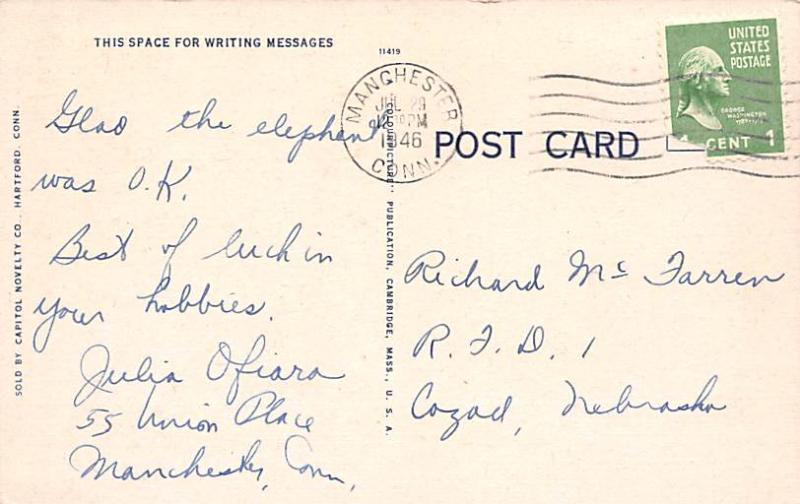 THIS SPACE FOR WRITING MESSAGES
11419
Glad the elephant
was O.K.
Best of luck in
your hobbies.
Julia Ofiara
55 Union Place
Manchester, Conn.
SOLD BY CAPITOL NOVELTY CO., HARTFORD, CONN.
PUBLICATION, CAMBRIDGE, MASS., U. S. A.
MANCHESTER
JUL 29
PM
1946
CONN.
POST CARD
UNITED
STATES
POSTAGE
GEORGE
WASHINGTON
CENT 1
Richard Mc Farren
R. F. D. 1
Cozad, Nebraska